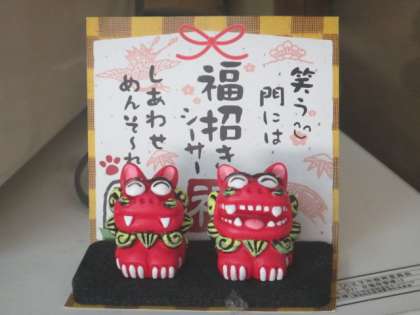 笑う
門には
福招き
シーサー
しあわせ
めんそ〜れ
福